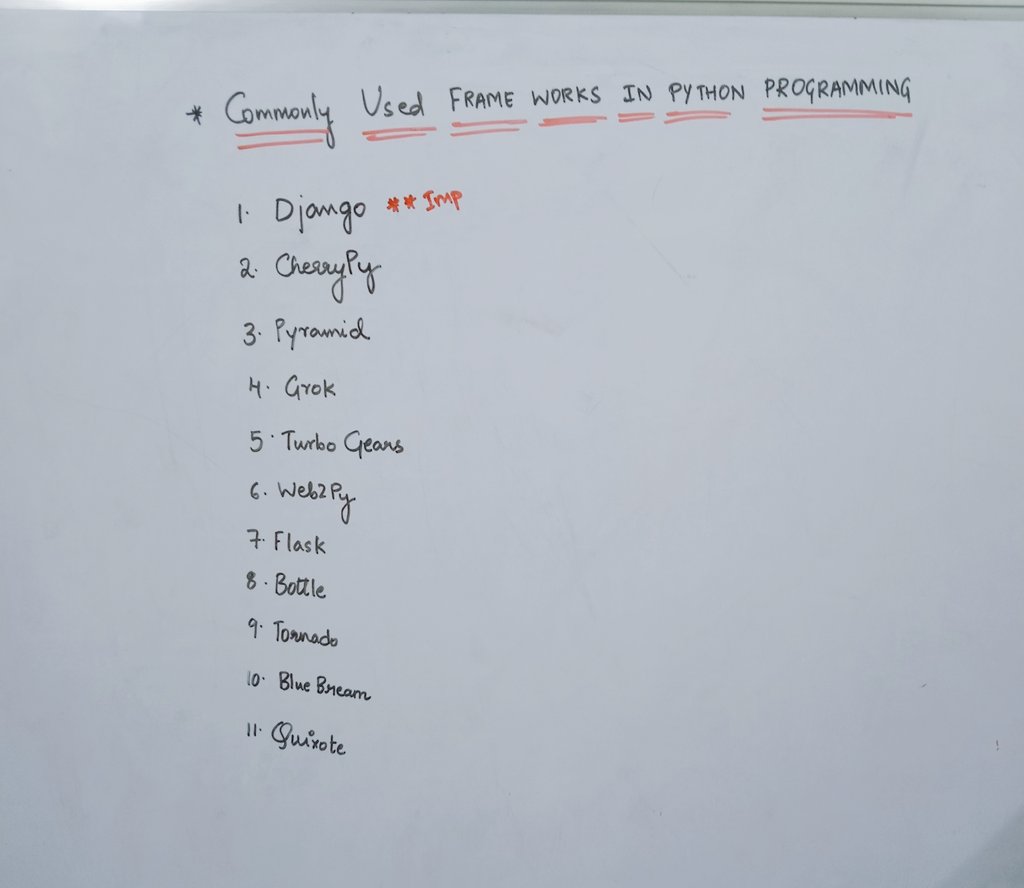 * Commonly Used FRAME WORKS IN PYTHON PROGRAMMING
1. Django ** Imp
2. CherryPy
3. Pyramid
4. Grok
5. Turbo Gears
6. Web2Py
7. Flask
8. Bottle
9. Tornado
10. Blue Bream
11. Quixote